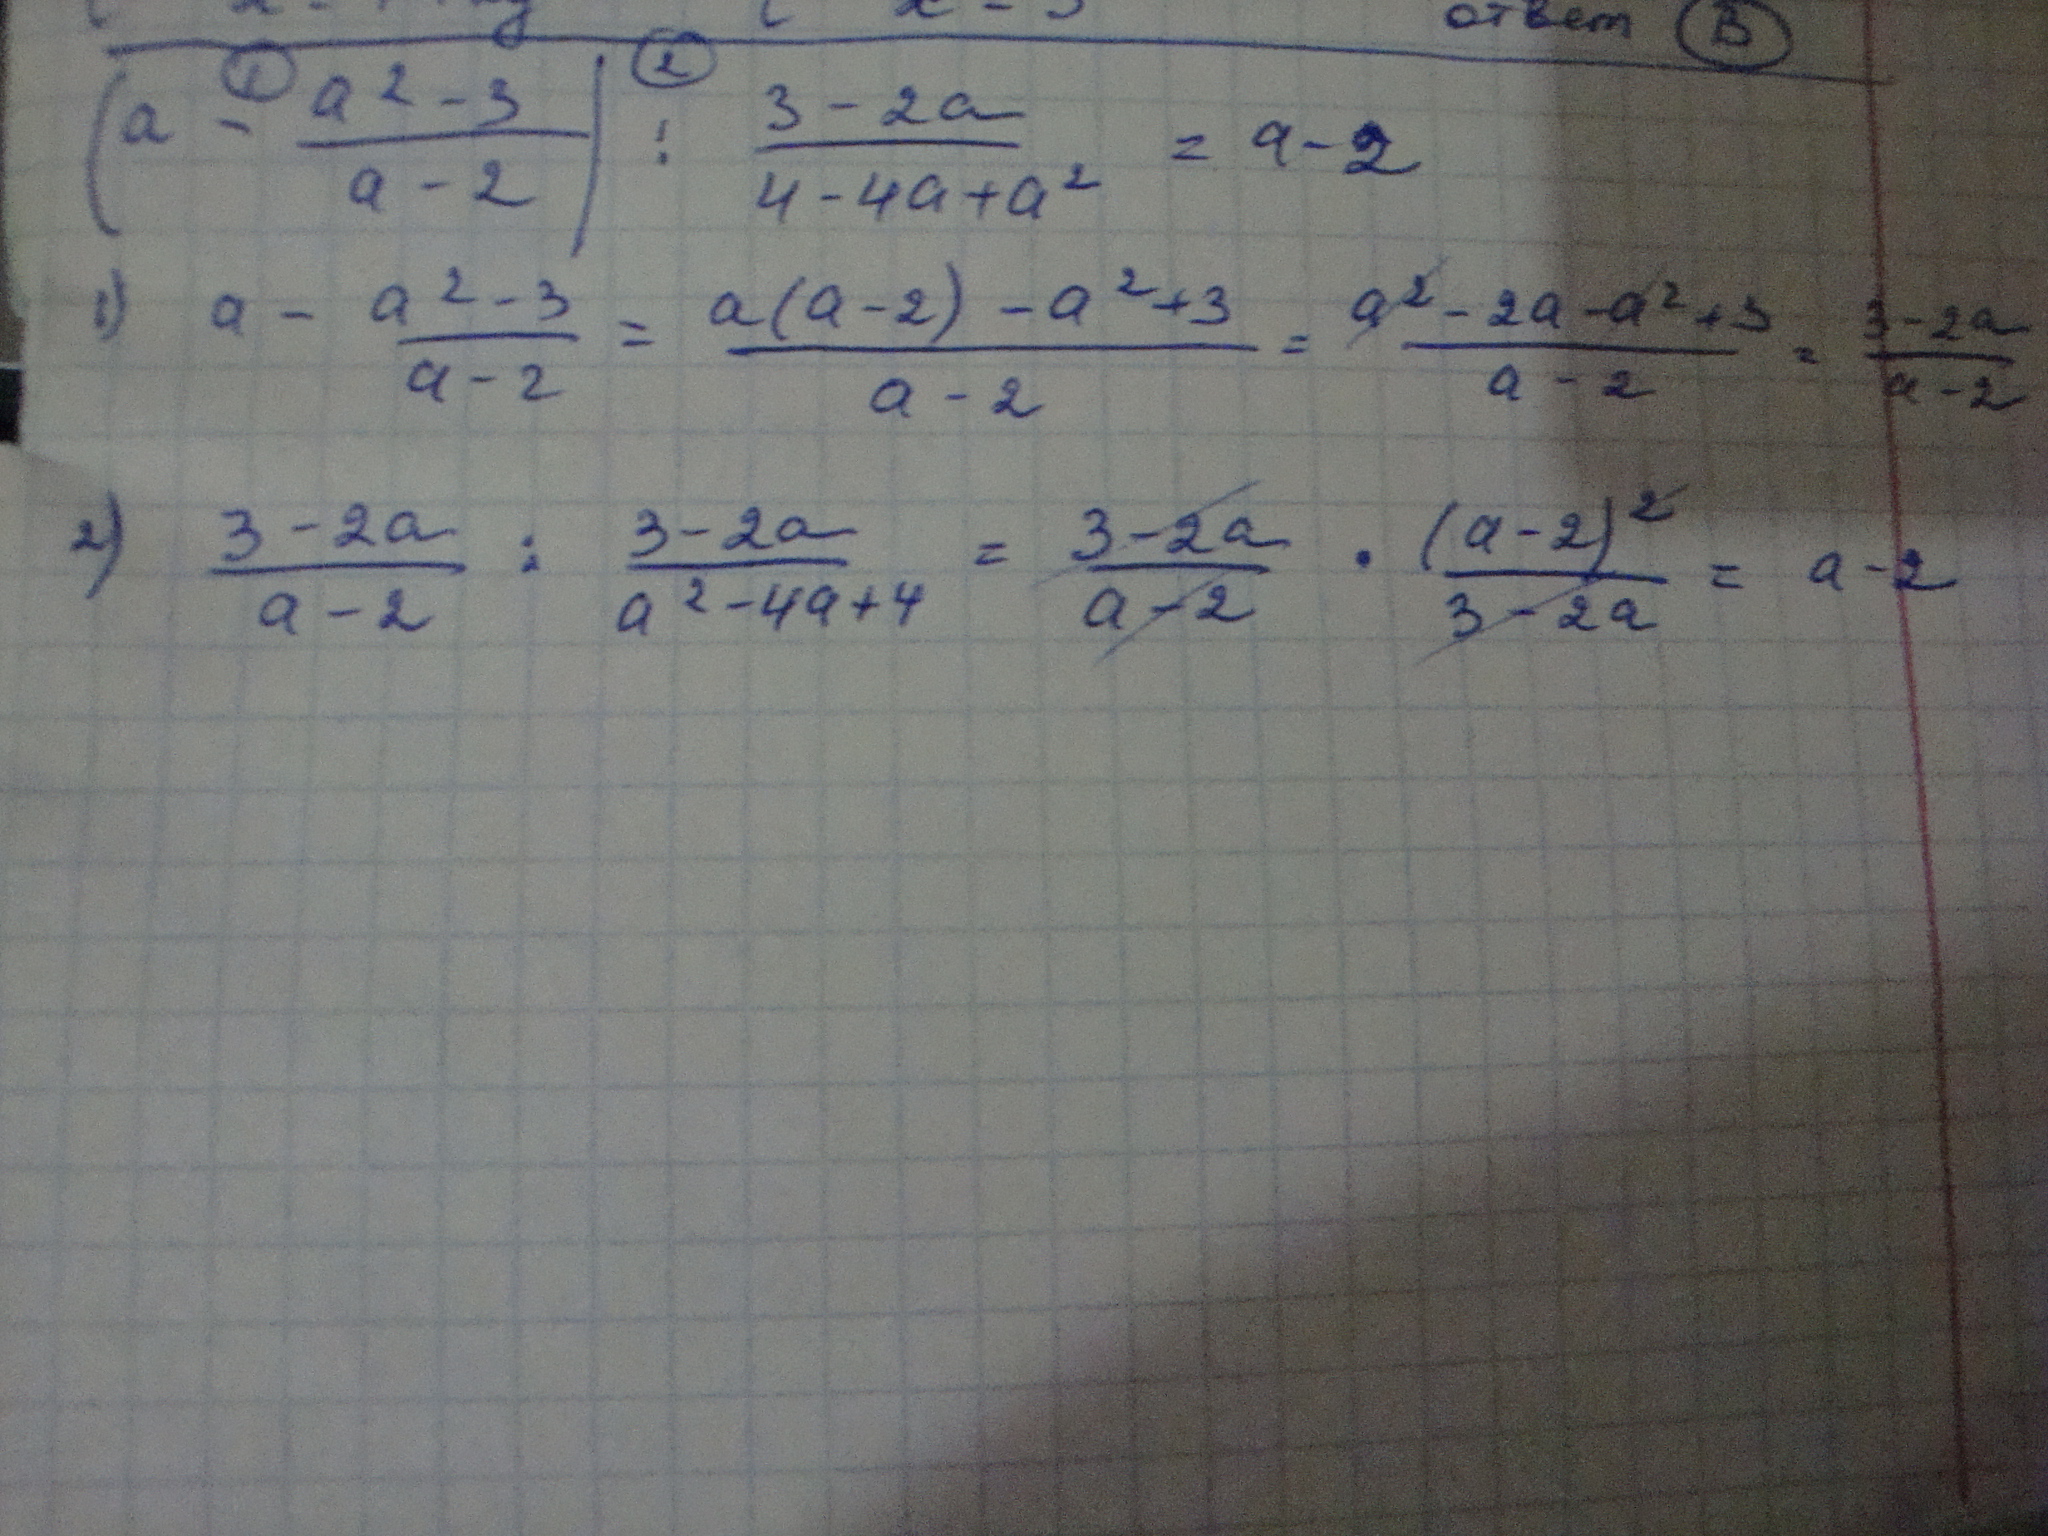 ответ (В)
(a - (a² - 3)/(a - 2)) : (3 - 2a)/(4 - 4a + a²) = a - 2
1) a - (a² - 3)/(a - 2) = (a(a - 2) - a² + 3)/(a - 2) = (a² - 2a - a² + 3)/(a - 2) = (3 - 2a)/(a - 2)
2) (3 - 2a)/(a - 2) : (3 - 2a)/(a² - 4a + 4) = (3 - 2a)/(a - 2) · (a - 2)²/(3 - 2a) = a - 2